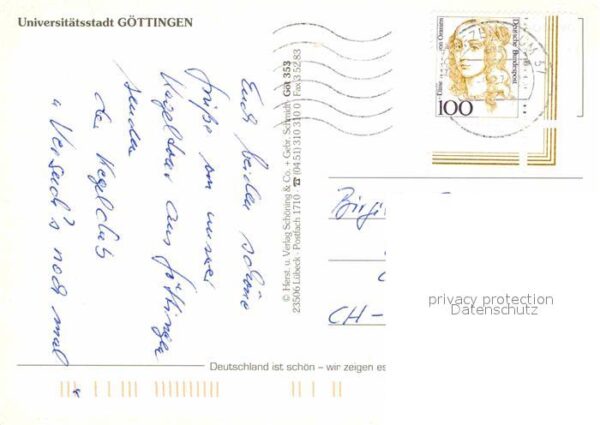 Universitätsstadt GÖTTINGEN
Euch beiden schöne
Grüße von unser
Kegeltour aus Göttingen
senden
der Kegelclub
"Versuch's noch mal"
© Herst. u. Verlag Schöning & Co. + Gebr. Schmidt · Göt 353
23506 Lübeck · Postfach 1710 ☎ (04 51) 310 310 0 / Fax 3 52 83
Deutsche Bundespost
100
CH-
Deutschland ist schön – wir zeigen es
privacy protection
Datenschutz